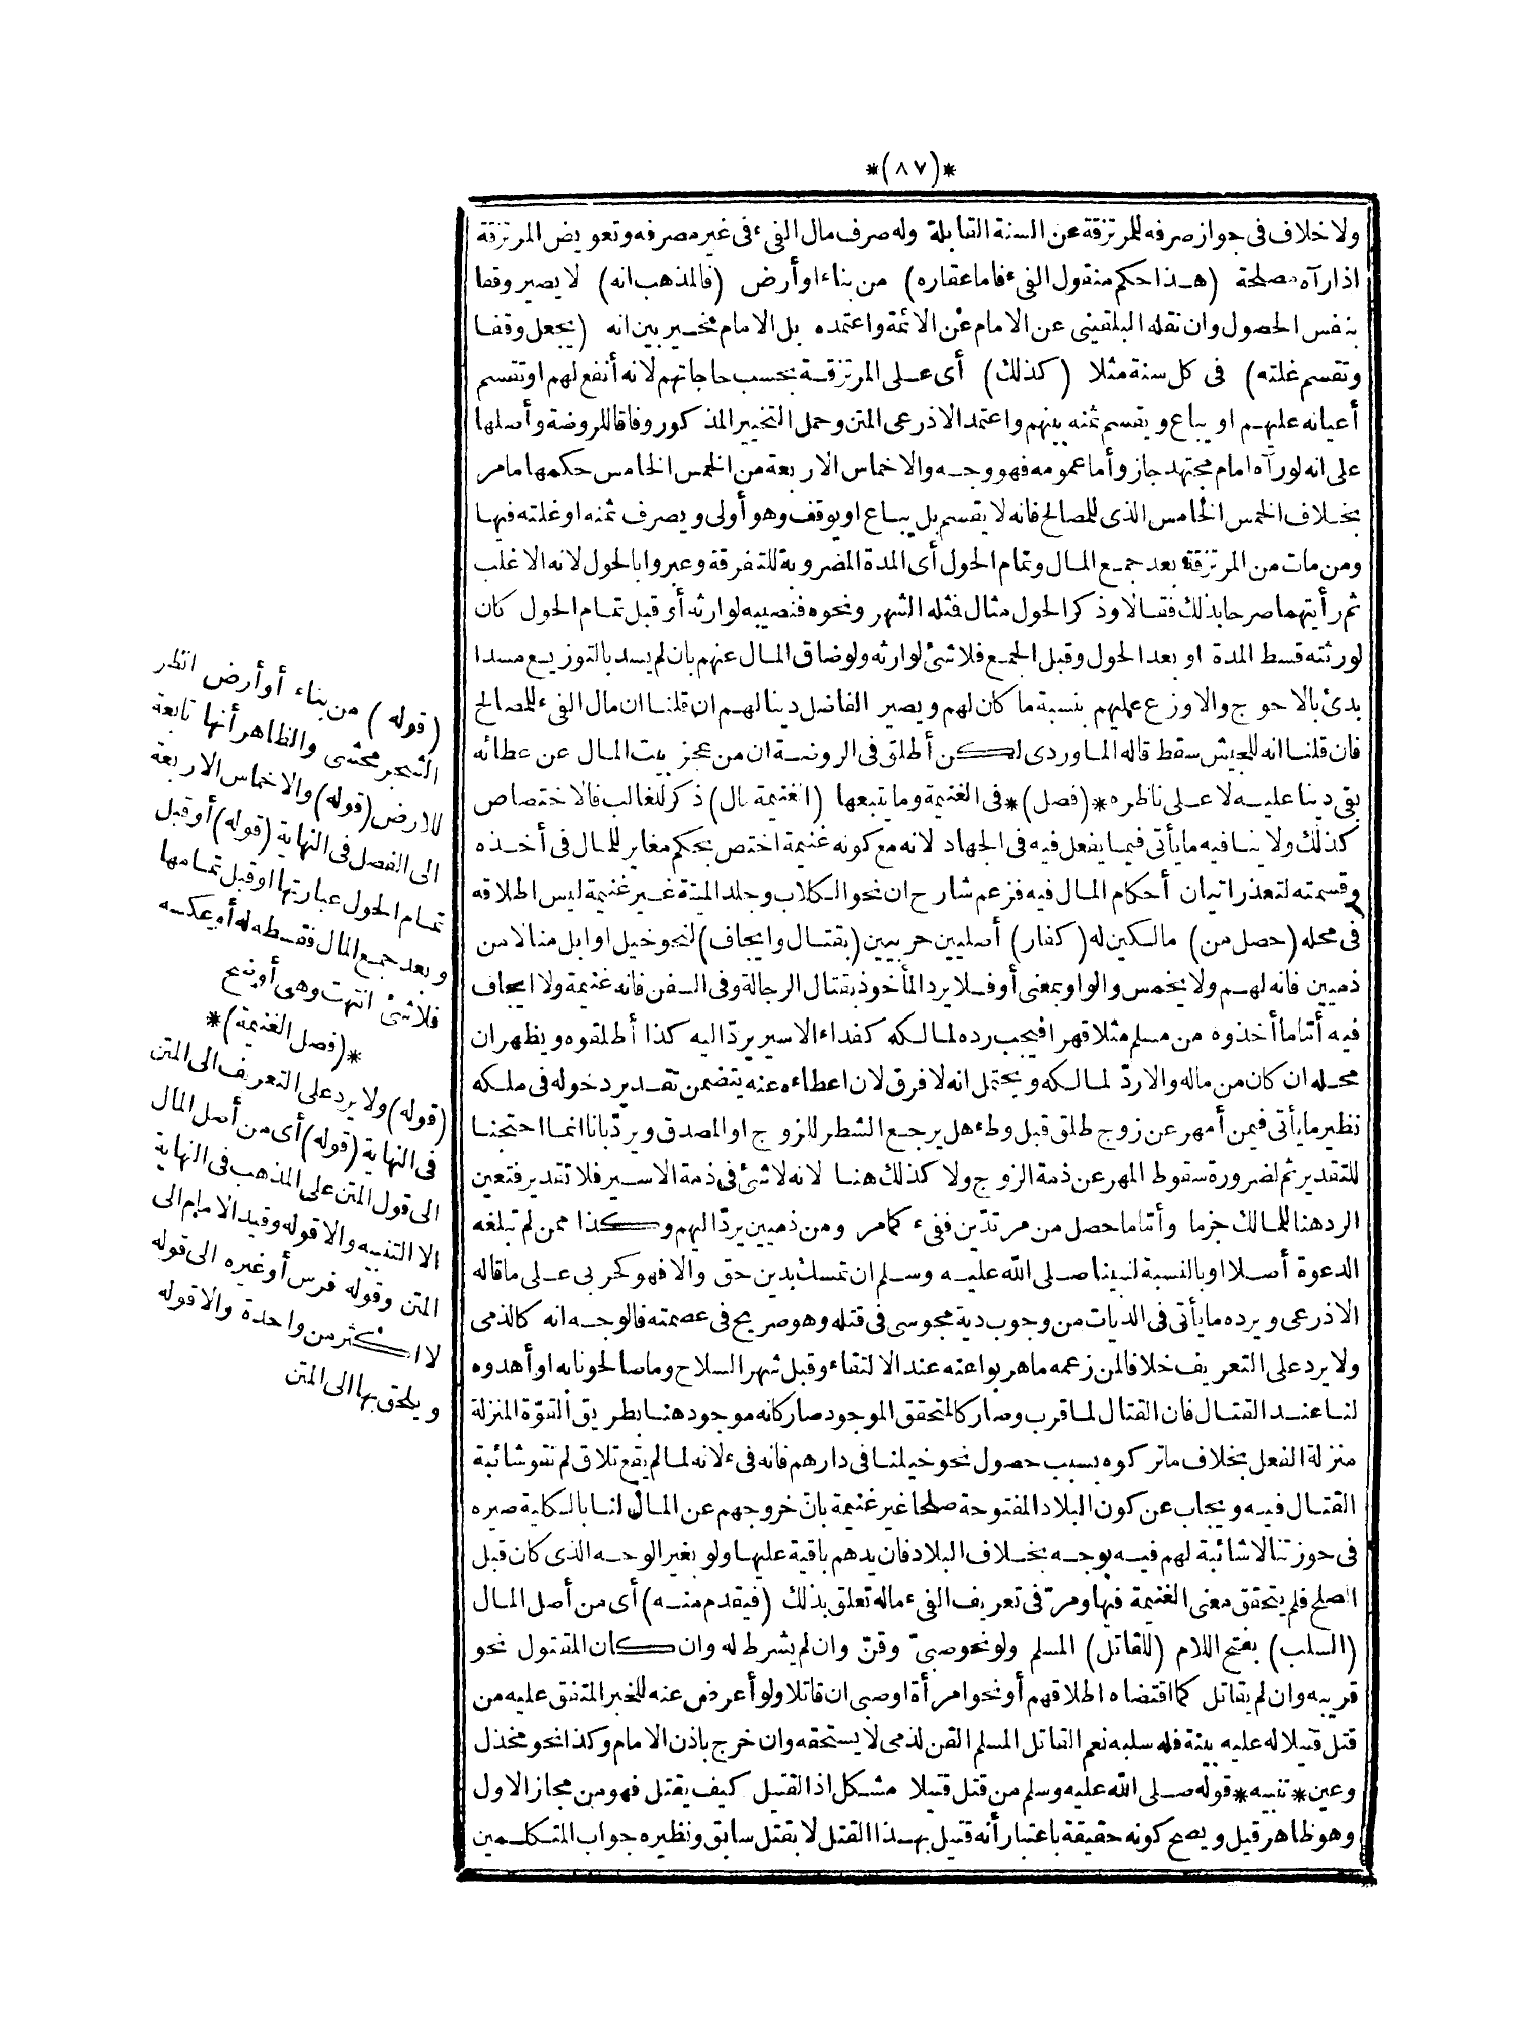 *(٨٧)*
ولا خلاف فى جواز صرفه للمرتزقة عن السنة القابلة وله صرف مال الفىء فى غير مصرفه وتعويض المرتزقة
اذا رآه مصلحة (هـذا حكم منقول الفىء فاما عقاره) من بناء أو أرض (فالمذهب انه) لا يصير وقفا
بنفس الحصول وان نقله البلقينى عن الامام عن الائمة واعتمده بل الامام مخـير بين انه (يجعل وقفـا
وتقسم غلته) فى كل سنة مثلا (كذلك) أى عـلى المرتزقـة بحسب حاجاتهم لانه أنفع لهم او تقسم
أعيانه عليهـم او يباع ويقسم ثمنه بينهم واعتمد الاذرعى المتن وحمل التخيير المذكور وفاقا للروضة وأصلها
على انه لو رآه امام مجتهد جاز وأما عمومه فهو وجـه والاخماس الاربعة من الخمس الخامس حكمها ما مر
بخـلاف الخمس الخامس الذى للمصالح فانه لا يقسم بل يبـاع او يوقف وهو أولى ويصرف ثمنه او غلته فيهـا
ومن مات من المرتزقة بعد جمـع المـال وتمام الحول أى المدة المضروبة للتفرقة وعبروا بالحول لانه الاغلب
ثم رأيتهما صرحا بذلك فقـالا وذكر الحول مثال فمثله الشهر ونحوه فنصيبه لوارثه أو قبل تمـام الحول كان
لورثته قسط المدة او بعد الحول وقبل الجمـع فلا شئ لوارثه ولو ضاق المـال عنهم بان لم يسد بالتوزيـع مسدا
بدئ بالاحوج والا وزع عليهم بنسبة ما كان لهم ويصير الفاضل دينا لهـم ان قلنـا ان مال الفىء للمصالح
فان قلنـا انه للجيش سقط قاله المـاوردى لـكن أطلق فى الروضـة ان من عجز بيت المـال عن عطائه
بقى دينا عليـه لا عـلى ناظره *(فصل)* فى الغنيمة وما يتبعها (الغنيمة مال) ذكر للغالب فالاختصاص
كذلك ولا ينـافيه ما يأتى فيمـا يفعل فيه فى الجهاد لانه مع كونه غنيمة اختص بحكم مغاير للمال فى أخـذه
وقسمته لتعذر اتيان أحكام المـال فيه فزعم شارح ان نحو الـكلاب وجلد الميتة غـير غنيمة ليس اطلاقه
فى محله (حصل من) مالـكين له (كفار) أصليين حربيين (بقتـال وايجاف) لنحو خيل او ابل منا لا من
ذميين فانه لهـم ولا يخمس والواو بمعنى أو فـلا يرد المأخوذ بقتال الرجالة وفى السفن فانه غنيمة ولا ايجاف
فيه أمّا ما أخذوه من مسلم مثلا قهرا فيجب رده لمـالـكه كفداء الاسير يردّ اليه كذا أطلقوه ويظهر ان
محـله ان كان من ماله والا ردّ لمـالـكه ويحتمل انه لا فرق لان اعطاءه عنه يتضمن تقـدير دخوله فى ملـكه
نظير ما يأتى فيمن أمهر عن زوج طلق قبل وطء هل يرجـع الشطر للزوج او المصدق ويردّ بانا انمـا احتجنـا
للتقدير ثم لضرورة سقوط المهر عن ذمة الزوج ولا كذلك هنـا لانه لا شئ فى ذمة الاسـير فلا تقدير فتعين
الرد هنا للمـالك جزما وأمّا ما حصل من مرتدّين ففىء كمامر ومن ذميين يردّ اليهم وكـذا ممن لم تبلغه
الدعوة أصـلا او بالنسبة لنبينا صـلى الله عليـه وسـلم ان تمسك بدين حق والا فهو كحربى عـلى ما قاله
الاذرعى ويرده ما يأتى فى الديات من وجوب دية مجوسى فى قتله وهو صريح فى عصمته فالوجـه انه كالذمى
ولا يرد على التعريف خلافا لمن زعمه ما هربوا عنه عند الالتقاء وقبل شهر السلاح وما صالحونا به او أهدوه
لنـا عنـد القتـال فان القتال لمـا قرب وصار كالمتحقق الموجود صار كانه موجود هنـا بطريق القوّة المنزلة
منزلة الفعل بخلاف ما تركوه بسبب حصول نحو خيلنـا فى دارهم فانه فىء لانه لمـا لم يقع تلاق لم تقو شائبة
القتـال فيـه ويجاب عن كون البلاد المفتوحة صلحا غير غنيمة بانّ خروجهم عن المـال لنـا بالـكلية صيره
فى حوزتنا لا شائبة لهم فيـه بوجـه بخـلاف البلاد فان يدهم باقية عليهـا ولو بغير الوجـه الذى كان قبل
الصلح فلم يتحقق معنى الغنيمة فيها ومرّ فى تعريف الفىء ماله تعلق بذلك (فيقدم منـه) أى من أصل المـال
(السلب) بفتح اللام (للقاتل) المسلم ولو نحو صبىّ وقنّ وان لم يشرط له وان كـان المقتول نحو
قريبه وان لم يقاتل كما اقتضاه اطلاقهم أو نحو امرأة او صبى ان قاتلا ولو أعرض عنه للخبر المتفق عليه من
قتل قتيلا له عليه بينة فله سلبه نعم القاتل المسلم القن لذمى لا يستحقه وان خرج باذن الامام وكذا نحو مخذل
وعين * تنبيه * قوله صـلى الله عليه وسلم من قتل قتيلا مشكل اذ القتيـل كيف يقتل فهو من مجاز الاول
وهو ظاهر قيل ويصح كونه حقيقة باعتبار أنه قتيل بهـذا القتل لا بقتل سابق ونظيره جواب المتـكلـمين
(قوله) من بناء أو أرض انظر
الشجر محشى والظاهر أنها تابعة
للارض (قوله) والاخماس الاربعة
الى الفصل فى النهاية (قوله) أو قبل
تمـام الحول عبارتها او قبل تمـامها
وبعد جمـع المال فقسطه له أو عكسه
فلا شئ انتهت وهى أوضح
*(فصل الغنيمة)*
(قوله) ولا يرد على التعريف الى المتن
فى النهاية (قوله) أى من أصل المال
الى قول المتن على المذهب فى النهاية
الا التنبيه والا قوله وقيد الامام الى
المتن وقوله فرس أو غيره الى قوله
لا اكـثر من واحدة والا قوله
ويلحق بها الى المتن